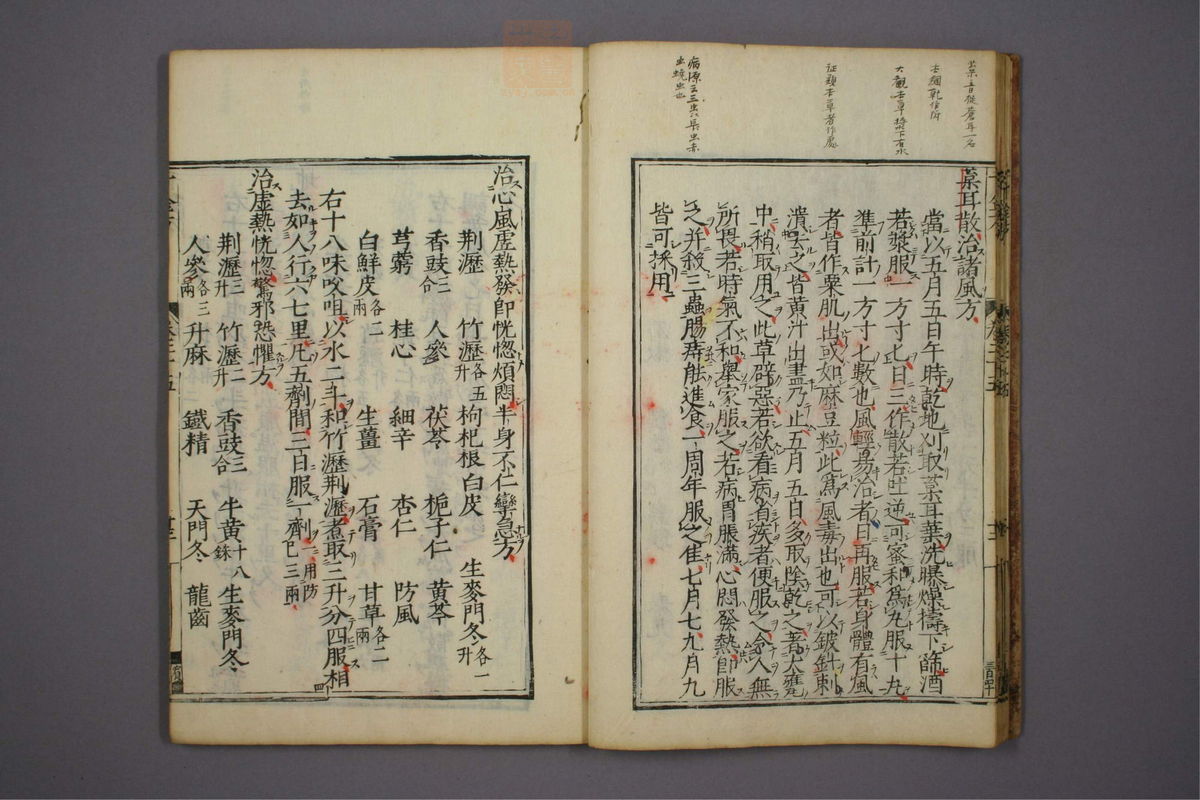 葈耳散治諸風方
當以五月五日午時乾地刈取葈耳葉洗曝燥擣下篩酒
若漿服一方寸匕日三作散若吐逆可蜜和爲丸服十丸
準前計一方寸匕數也風輕易治者日再服若身體有風
者皆作粟肌出或如麻豆粒此爲風毒出也可以鈹針刺
潰去之皆黃汁出盡乃止五月五日多取陰乾之著大甕
中稍取用之此草辟惡若欲看病省疾者便服之令人無
所畏若時氣不和舉家服之若病胃脹滿心悶發熱卽服
之并殺三蟲腸痔能進食一周年服之佳七月七九月九
皆可採用
治心風虛熱發卽恍惚煩悶半身不仁攣急方
荆瀝 竹瀝各五升 枸杞根白皮 生麥門冬各一升
香豉三合 人參 茯苓 梔子仁 黃芩
芎藭 桂心 細辛 杏仁 防風
白鮮皮各二兩 生薑 石膏 甘草各二兩
右十八味㕮咀以水二斗和竹瀝荆瀝煮取三升分四服相
去如人行六七里凡五劑間三日服一劑一用防巳三兩
治虛熱恍惚驚邪恐懼方
荆瀝三升 竹瀝二升 香豉三合 牛黃十八銖 生麥門冬
人參各三兩 升麻 鐵精 天門冬 龍齒